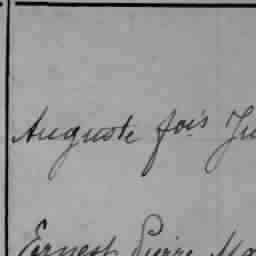 Auguste fois
Ernest Pierre